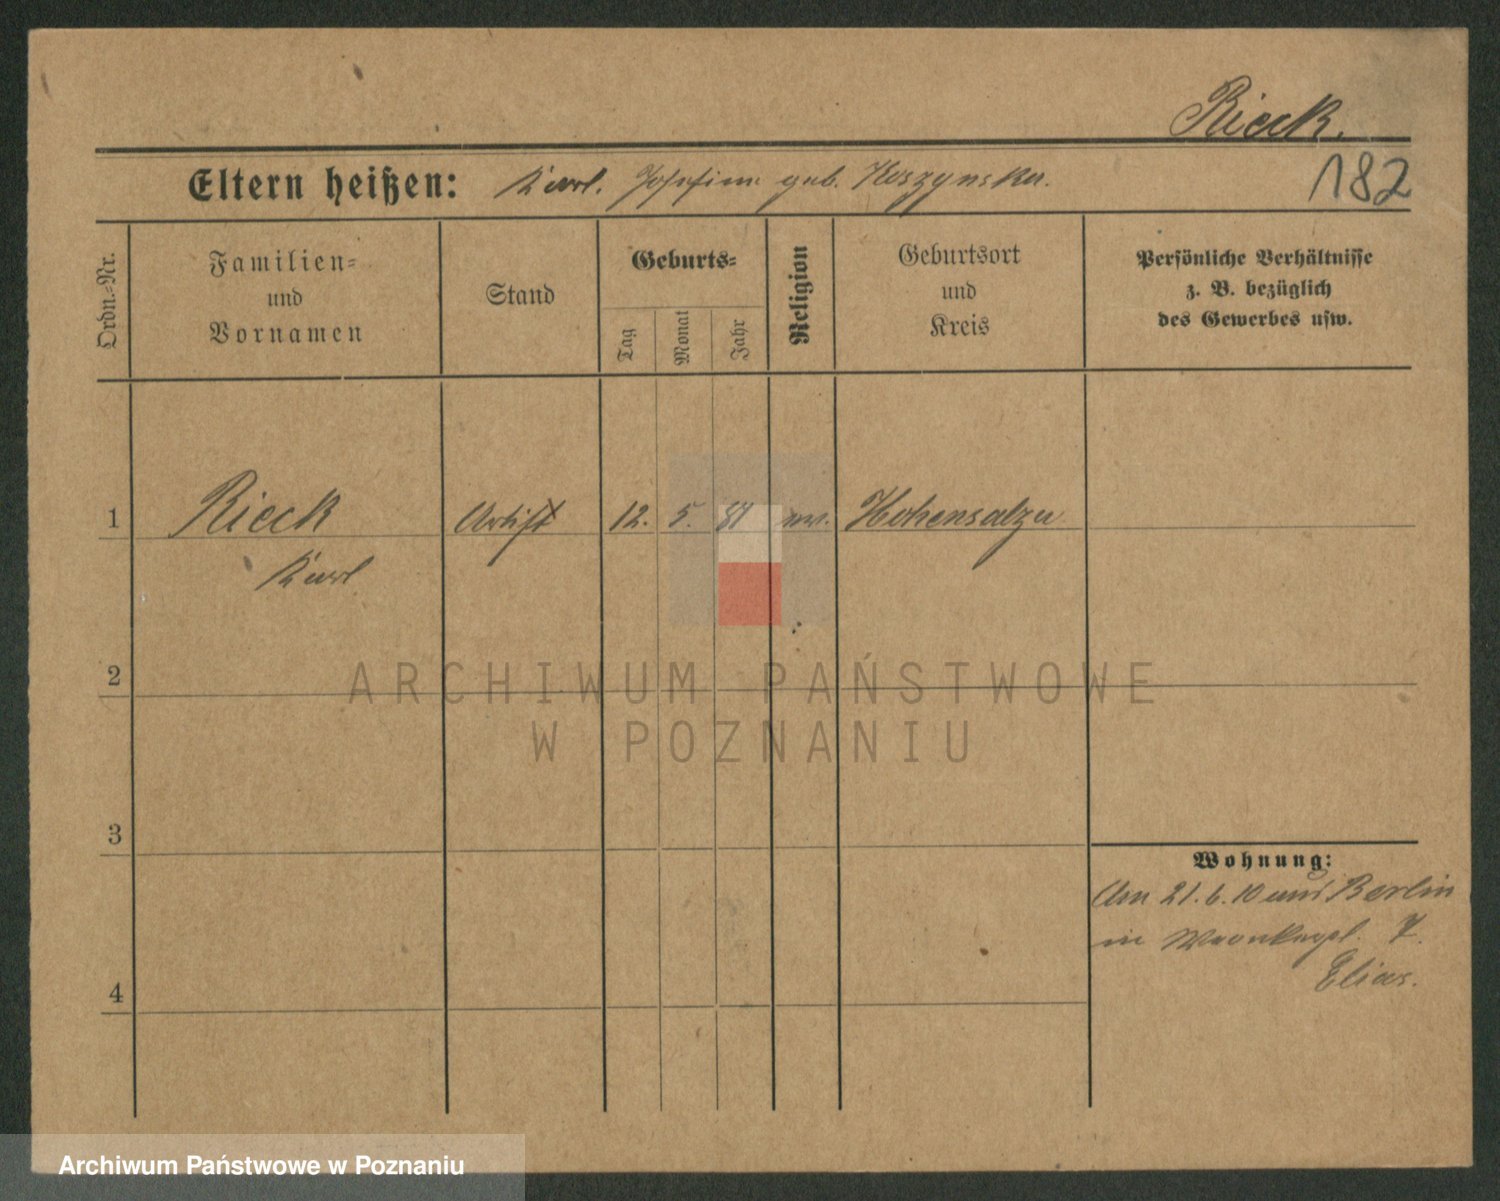 Rieck.
182
Eltern heißen: Karl. Josefine geb. Koszynska.
Ordn.-Nr.
Familien-
und
Vornamen
Stand
Geburts-
Tag
Monat
Jahr
Religion
Geburtsort
und
Kreis
Persönliche Verhältnisse
z. B. bezüglich
des Gewerbes usw.
1 Rieck Artist 12. 5. 81 ev. Hohensalza
Karl
2
3
4
Wohnung:
Am 21.6.10 aus Berlin
in Wronkerpl. 7.
Elias.
ARCHIWUM PAŃSTWOWE
W POZNANIU
Archiwum Państwowe w Poznaniu